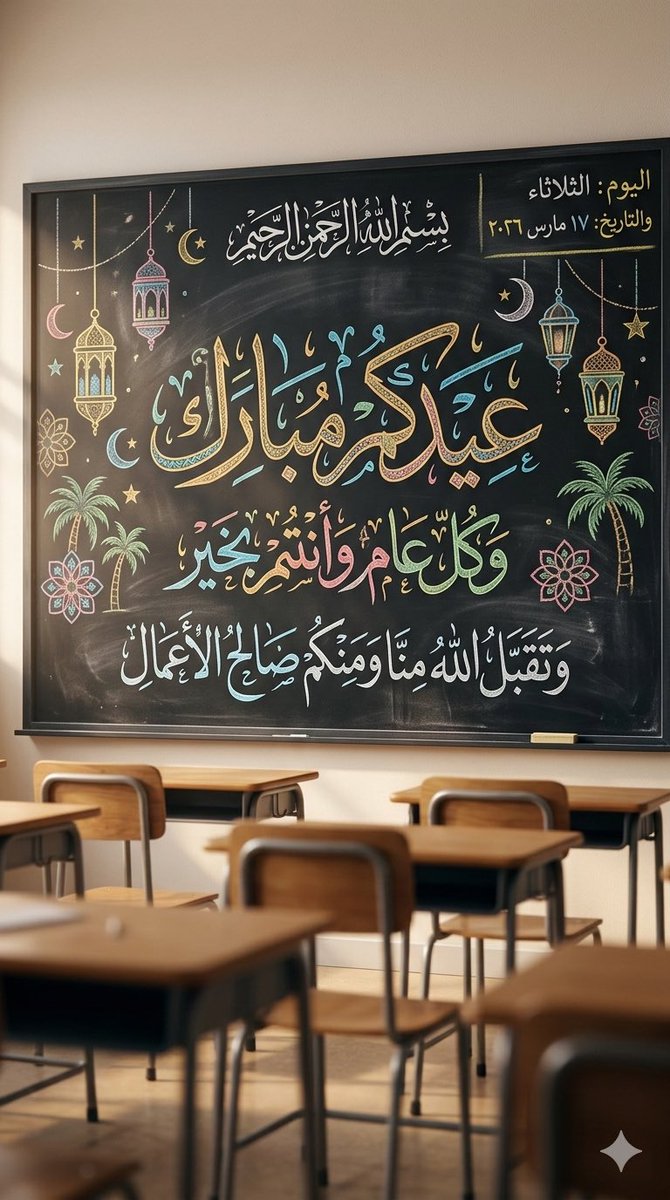 اليوم: الثلاثاء
والتاريخ: ١٧ مارس ٢٠٢٦
بِسْمِ اللهِ الرَّحْمٰنِ الرَّحِيْمِ
عِيدُكُمْ مُبَارَك
وَكُلّ عَام وَأَنتُمْ بِخَيْر
وَتَقَبَّلُ اللهُ مِنَّا وَمَنِكُمْ صَالِحُ الأَعْمَالِ